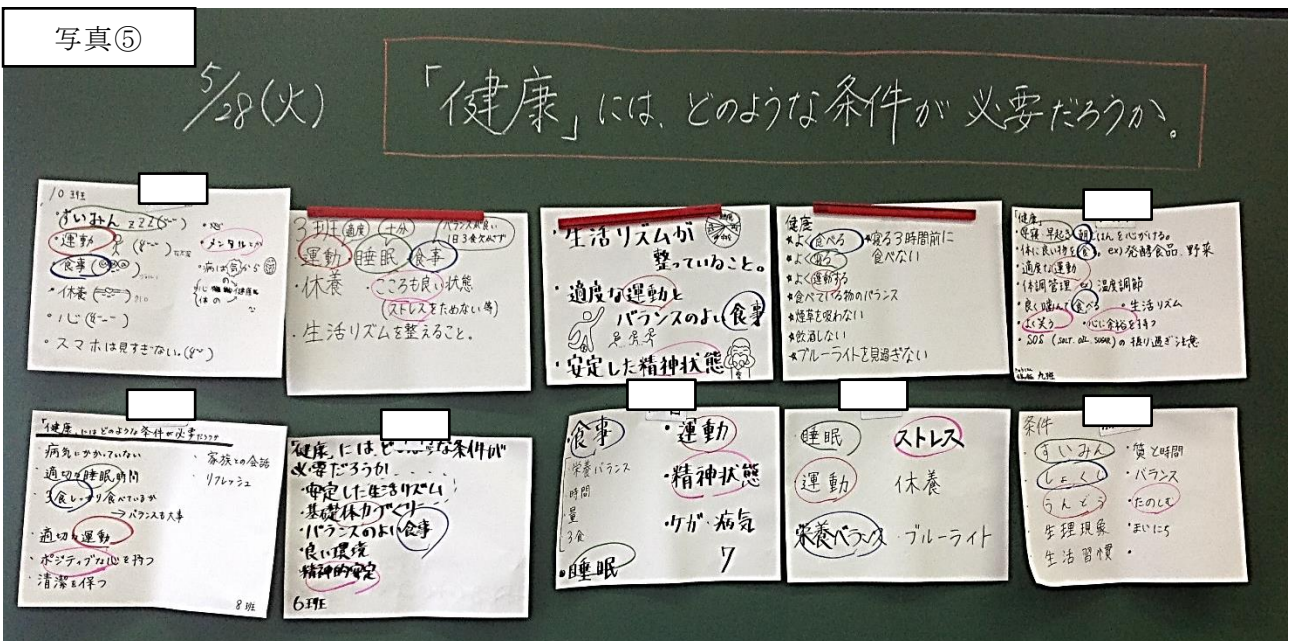 写真⑤
5/28(火)
「健康」には、どのような条件が必要だろうか。
10班
・すいみん zzz
・運動
・食事
・休養
・心
・スマホは見すぎない。
・心
・メンタルとか
・病は気から
3班
適度
十分
バランスが良い
1日3食欠かさず
運動 睡眠 食事
・休養
・こころも良い状態
(ストレスをためない等)
・生活リズムを整えること。
・生活リズムが
整っていること。
・適度な運動と
バランスのよい食事
・安定した精神状態
健康
★よく食べる
★よく寝る
★よく運動する
★食べている物のバランス
★煙草を吸わない
★飲酒しない
★ブルーライトを見過ぎない
★寝る3時間前に
食べない
「健康」
・早寝・早起き 朝ごはんを心がける。
・体に良い物を食。ex) 発酵食品、野菜
・適度な運動
・体調管理 ex) 温度調節
・良く噛んで食べる ・生活リズム
・よく笑う ・心に余裕を持つ
・SOS (SALT. OIL. SUGAR)の摂り過ぎ注意
九班
「健康」にはどのような条件が必要だろうか
・病気にかかっていない
・適切な睡眠時間
・3食しっかり食べているか
→バランスも大事
・適切な運動
・ポジティブな心を持つ
・清潔を保つ
・家族との会話
・リフレッシュ
8班
「健康」にはどのような条件が
必要だろうか
・安定した生活リズム
・基礎体力づくり
・バランスのよい食事
・良い環境
・精神的安定
6班
・食事
・栄養バランス
・時間
・量
・3食
・睡眠
・運動
・精神状態
・ケガ・病気
7
・睡眠
・運動
・栄養バランス
ストレス
休養
・ブルーライト
条件
・すいみん
・しょくじ
・うんどう
・生理現象
・生活習慣
・質と時間
・バランス
・たのしむ
・まいにち